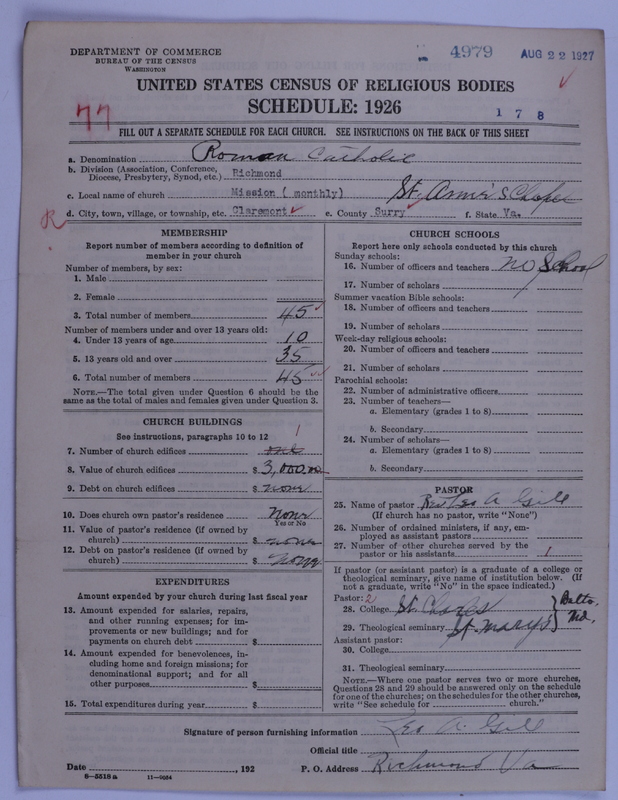 DEPARTMENT OF COMMERCE
BUREAU OF THE CENSUS
WASHINGTON
4979 AUG 22 1927
UNITED STATES CENSUS OF RELIGIOUS BODIES
SCHEDULE: 1926
1 7 8
77
FILL OUT A SEPARATE SCHEDULE FOR EACH CHURCH. SEE INSTRUCTIONS ON THE BACK OF THIS SHEET
a. Denomination Roman Catholic
b. Division (Association, Conference, Diocese, Presbytery, Synod, etc.) Richmond
c. Local name of church Mission ( monthly) St. Chapel
d. City, town, village, or township, etc. Claremont e. County Surry f. State Va.
R
MEMBERSHIP
Report number of members according to definition of
member in your church
Number of members, by sex:
1. Male
2. Female
3. Total number of members 45
Number of members under and over 13 years old:
4. Under 13 years of age 10
5. 13 years old and over 35
6. Total number of members 45
NOTE.—The total given under Question 6 should be
same as the total of males and females given under Question 3.
CHURCH BUILDINGS
See instructions, paragraphs 10 to 12
1
7. Number of church edifices one
8. Value of church edifices $ 3,000.00
9. Debt on church edifices $ none
10. Does church own pastor's residence none
Yes or No
11. Value of pastor's residence (if owned by
church) $ none
12. Debt on pastor's residence (if owned by
church) $ none
EXPENDITURES
Amount expended by your church during last fiscal year
13. Amount expended for salaries, repairs,
and other running expenses; for im-
provements or new buildings; and for
payments on church debt $
14. Amount expended for benevolences, in-
cluding home and foreign missions; for
denominational support; and for all
other purposes $
15. Total expenditures during year $
CHURCH SCHOOLS
Report here only schools conducted by this church
Sunday schools:
16. Number of officers and teachers no school
17. Number of scholars
Summer vacation Bible schools:
18. Number of officers and teachers
19. Number of scholars
Week-day religious schools:
20. Number of officers and teachers
21. Number of scholars
Parochial schools:
22. Number of administrative officers
23. Number of teachers—
a. Elementary (grades 1 to 8)
b. Secondary
24. Number of scholars—
a. Elementary (grades 1 to 8)
b. Secondary
PASTOR
25. Name of pastor Rev Leo A Gill
(If church has no pastor, write "None")
26. Number of ordained ministers, if any, em-
ployed as assistant pastors
27. Number of other churches served by the
pastor or his assistants 1
If pastor (or assistant pastor) is a graduate of a college or
theological seminary, give name of institution below. (If
not a graduate, write "No" in the space indicated.)
Pastor: 2
28. College St. Charles } Balto,
29. Theological seminary St. Mary's } Md,
Assistant pastor:
30. College
31. Theological seminary
NOTE.—Where one pastor serves two or more churches,
Questions 28 and 29 should be answered only on the schedule
for one of the churches; on the schedules for the other churches,
write "See schedule for church."
Signature of person furnishing information Leo A. Gill
Official title
Date , 192 P. O. Address Richmond Va
6—5518a 11—9034